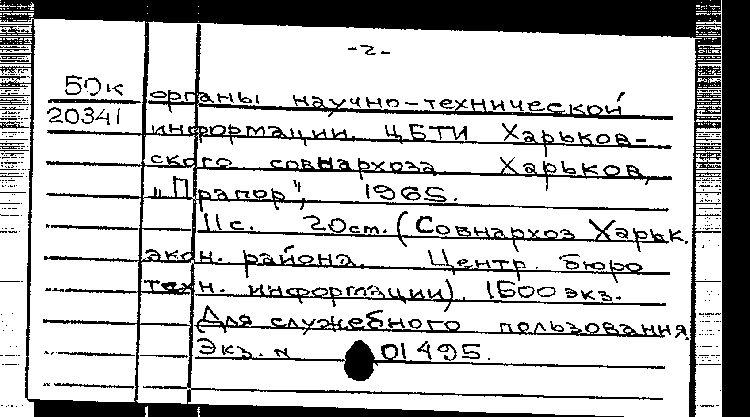 -2-
50к органы научно-технической
20341 информации. ЦБТИ Харьков-
ского совнархоза Харьков,
„Прапор", 1965.
11с. 20см. (Совнархоз Харьк.
экон. района. Центр. бюро
техн. информации). 1500 экз.
Для служебного пользования
Экз. N 01495.